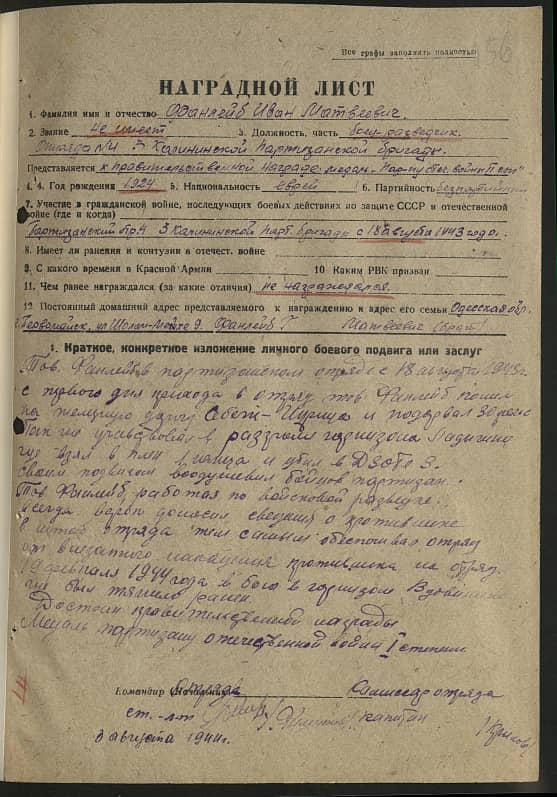 Все графы заполнять полностью
56
НАГРАДНОЙ ЛИСТ
1. Фамилия имя и отчество Фанлейб Иван Матвеевич.
2. Звание не имеет 3. Должность, часть боец-разведчик.
Отряда №4 3 Калининской Партизанской бригады.
Представляется к правительственной награде медаль
4. Год рождения 1924 5. Национальность еврей 6. Партийность беспартийный
7. Участие в гражданской войне, последующих боевых действиях по защите СССР и отечественной
войне (где и когда)
Партизанский отр. 3 Калининской Парт. бригады с 18 августа 1943 года.
8. Имеет ли ранения и контузии в отечест. войне
9. С какого времени в Красной Армии 10 Каким РВК призван
11. Чем ранее награждался (за какие отличия) не награждался.
12. Постоянный домашний адрес представляемого к награждению и адрес его семьи Одесская обл.
г. Первомайск, ул Шолом-Алейхема 9. Фанлейб Матвеевич (брат)
1. Краткое, конкретное изложение личного боевого подвига или заслуг
Тов. Фанлейб в партизанском отряде с 18 августа 1943 г.
с первого дня прихода в отряд тов Фанлейб ходил
на железную дорогу и подорвал 30 рельс
Так же участвовал в разгроме гарнизона
где взял в плен 1 немца и убил в ДЗОТе 3.
своим подвигом воодушевил бойцов партизан.
Тов. Фанлейб работая по войсковой разведке
всегда верно доносил сведения о противнике
в штаб отряда тем самым обеспечивал отряд
от внезапного нападения противника на отряд.
19 февраля 1944 года в бою в гарнизоне
где был тяжело ранен.
Достоин правительственной награды
Медаль партизану отечественной войны I степени
Командир отряда Комиссар отряда
ст. л-т капитан
8 августа 1944 г.